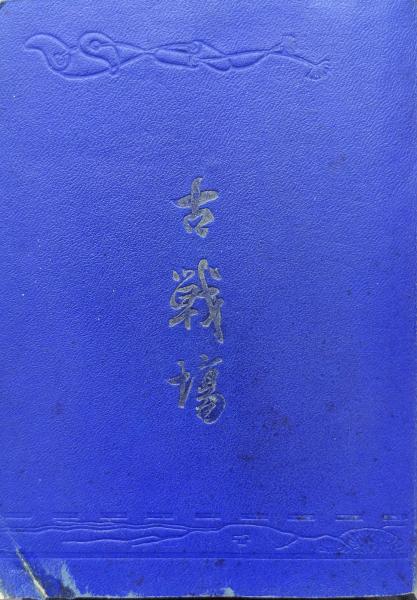 古戰場